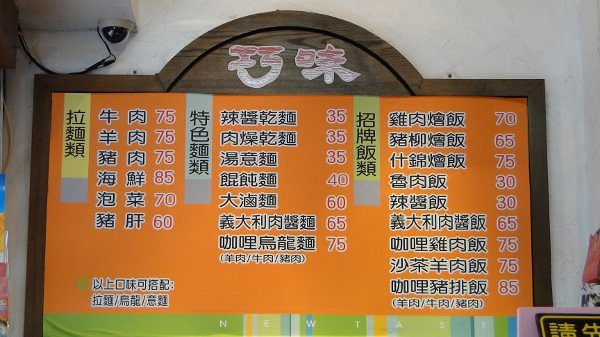 巧味
拉麵類
牛肉 75
羊肉 75
豬肉 75
海鮮 85
泡菜 70
豬肝 60
※以上口味可搭配:
拉麵/烏龍/意麵
特色麵類
辣醬乾麵 35
肉燥乾麵 35
湯意麵 35
餛飩麵 40
大滷麵 60
義大利肉醬麵 65
咖哩烏龍麵 75
(羊肉/牛肉/豬肉)
招牌飯類
雞肉燴飯 70
豬柳燴飯 65
什錦燴飯 75
魯肉飯 30
辣醬飯 30
義大利肉醬飯 65
咖哩雞肉飯 75
沙茶羊肉飯 75
咖哩豬排飯 85
(羊肉/牛肉/豬肉)
NEW TAST
請先